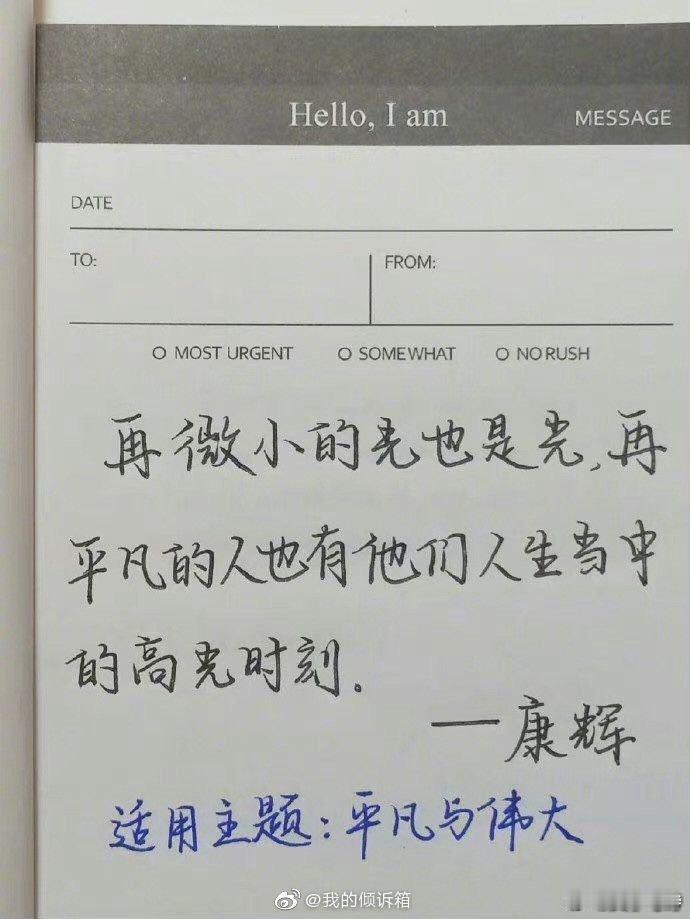 Hello, I am
MESSAGE
DATE
TO:
FROM:
O MOST URGENT O SOMEWHAT O NO RUSH
再微小的光也是光,再
平凡的人也有他们人生当中
的高光时刻。
——康辉
适用主题:平凡与伟大
@我的倾诉箱